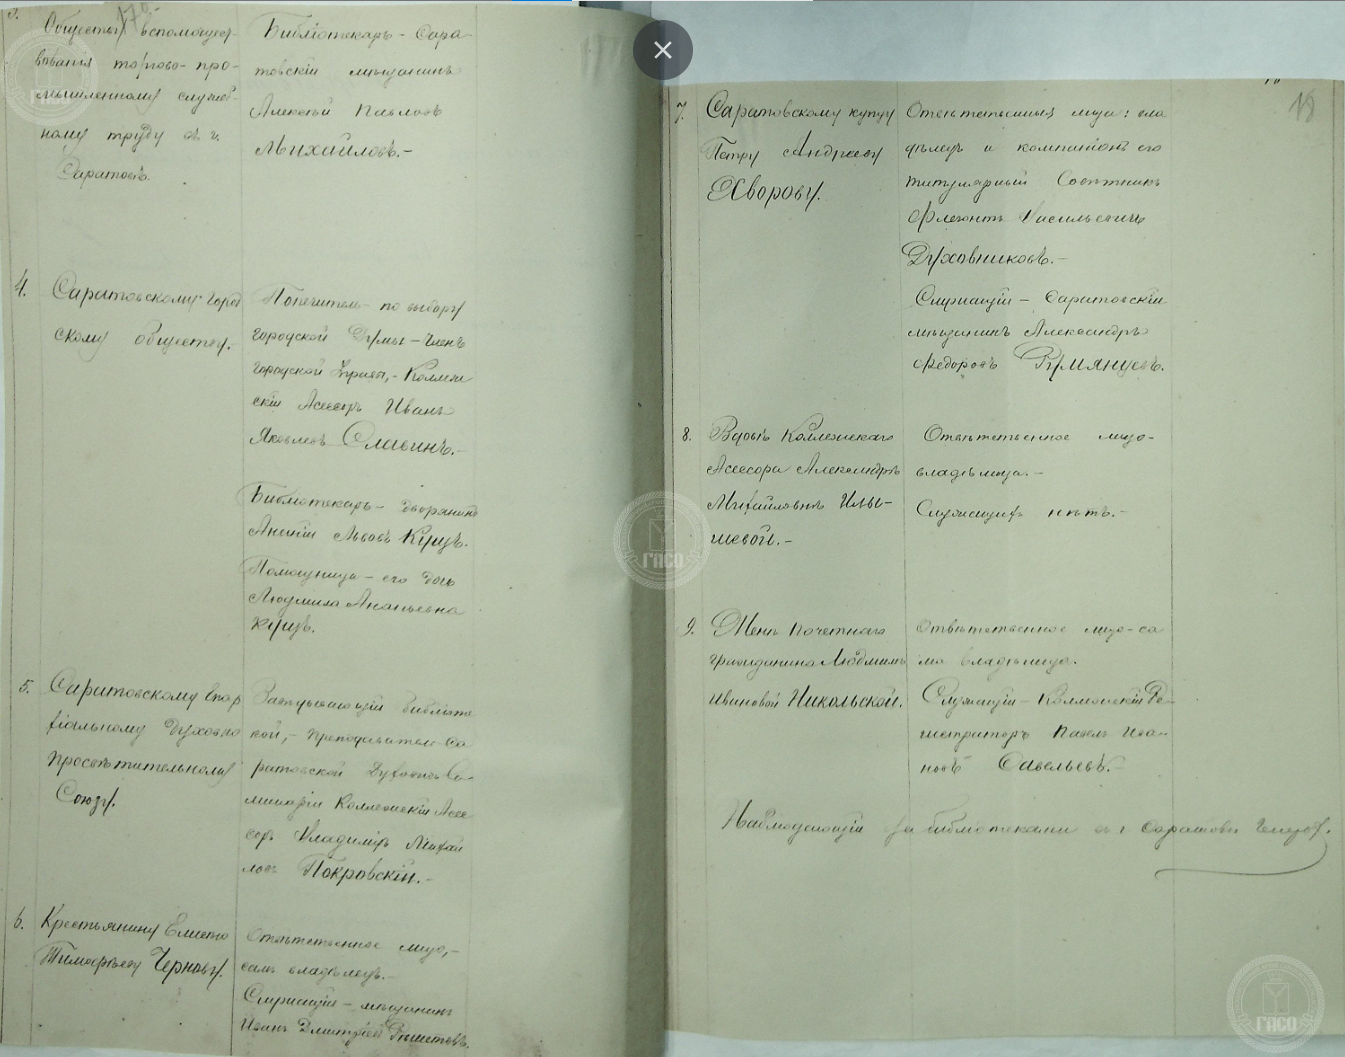 3.
170.
Общества вспомощест-
вованія торгово-про-
мышленному служеб-
ному труду въ г.
Саратовѣ.
Библіотекарь - Сара-
товскій мѣщанинъ
Алексѣй Павловъ
Михайловъ.-
4.
Саратовскому Город
скому обществу.
Попечитель - по выбору
городской Думы - Членъ
городской Управы, - Коллеж
скій Асессоръ Иванъ
Яковлевъ Славинъ.-
Библіотекарь - дворянинъ
Ананій Львовъ Кущъ.
Помощница - его дочь
Людмила Ананьевна
Кущъ.
5.
Саратовскому Епар
хіальному Духовно
Просвѣтительному
Союзу.
Завѣдывающій библіоте
кой, - преподаватель Са
ратовской Духовной Се-
минаріи Коллежскій Асес
соръ Владиміръ Михай
ловъ Покровскій.-
6.
Крестьянину
Тимофѣеву Чернову.
Отвѣтственное лицо, -
самъ владѣлецъ.-
Служащій - мѣщанинъ
Иванъ Дмитріевъ
18
7.
Саратовскому купцу
Петру Андрееву
Хворову.
Отвѣтственныя лица: вла
дѣлецъ и компаніонъ его
титулярный Совѣтникъ
Флегонтъ Васильевичъ
Духовниковъ.-
Служащій - Саратовскій
мѣщанинъ Александръ
Федоровъ Румянцевъ.
8.
Вдовѣ Коллежскаго
Асессора Александрѣ
Михайловнѣ Ильи-
шевой.-
Отвѣтственное лицо -
владѣлица.-
Служащихъ нѣтъ.-
9.
Женѣ Почетнаго
гражданина Людмилѣ
Ивановой Никольской.
Отвѣтственное лицо - са
ма владѣлица.
Служащій - Коллежскій Ре-
гистраторъ Павелъ Ива-
новъ Савельевъ.-
Наблюдающій за библіотеками въ г. Саратовѣ
ГАСО
ГАСО
ГАСО